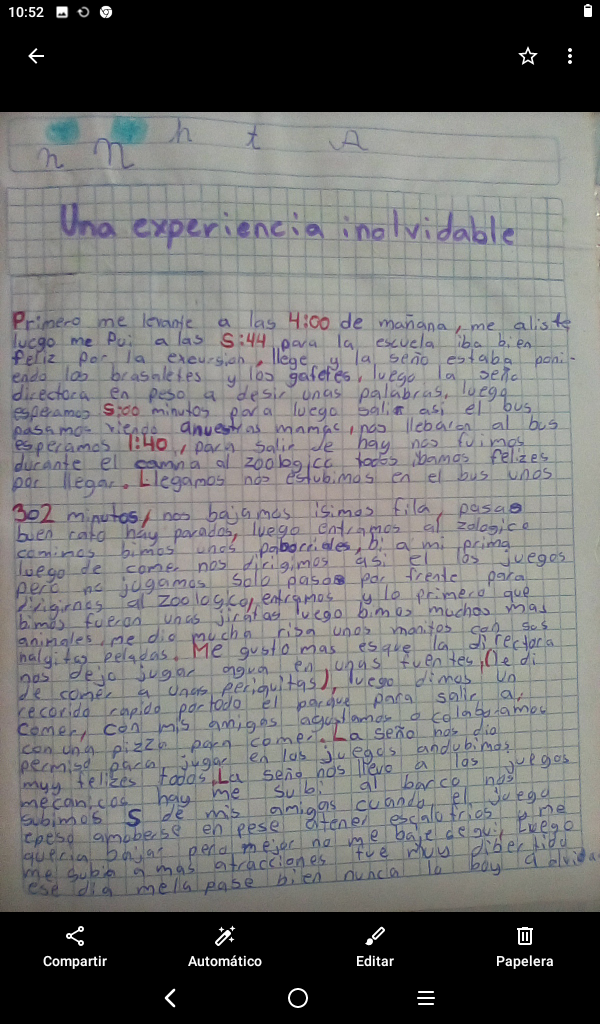 10:52
n n h t A
Una experiencia inolvidable
Primero me levante a las 4:00 de mañana, me aliste
luego me fui a las 5:44 para la escuela iba bien
feliz por la excursion, llege y la seño estaba poni-
endo los brasaletes y los gafetes, luego la seño
directora en peso a desir unas palabras, luego
esperamos 5:00 minutos para luego salir asi el bus
pasamos viendo anuestras mamas, nos llebaron al bus
esperamos 1:40, para salir de hay nos fuimos
durante el camna al zoologico todos ibamos felizes
por llegar. Llegamos nos estubimos en el bus unos
302 minutos, nos bajamos isimos fila, pasao
buen rato hay parados, luego entramos al zologico
comimos bimos unos paborrides, bi a mi prima
luego de comer nos dirigimos asi el los juegos
pero no jugamos solo pasaos por frente para
dirigirnos al zoologico, entramos y lo primero que
bimos fueron unas jirafas luego bimos muchos mas
animales, me dio mucha risa unos monitos con sos
nalgitas peladas. Me gusto mas esque la directora
nos dejo jugar agua en unas fuentes, (le di
de comer a unas periquitas), luego dimos un
recorido rapido portodo el parque para salir a,
comer, con mis amigas agullamos o colaboramos
con una pizza para comer. La seño nos dio
permiso para jugar en los juegos andubimos
muy felizes todos. La seño nos llevo a los juegos
mecanicos hay me subi al barco nos
subimos 5 de mis amigas cuando el juego
epeso amoberse en pese atener escalofrios y me
queria bajar pero mejor no me baje de qui, Luego
me subia a mas atracciones fue muy dibertido
ese dia mela pase bien nunca lo boy a olvidar
Compartir
Automático
Editar
Papelera